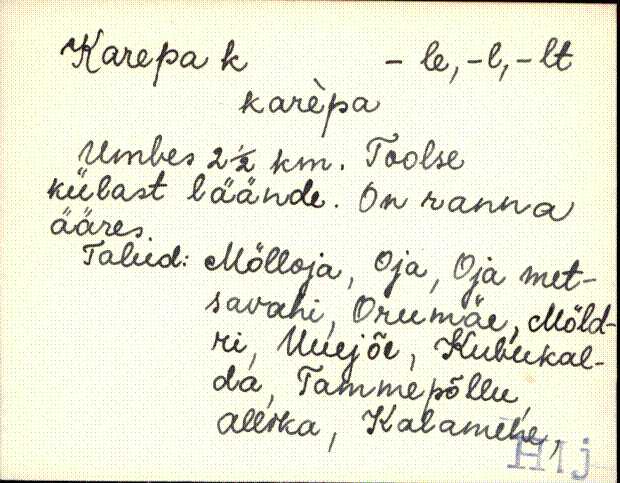 Karepa k -le, -l, -lt
karèpa
Umbes 2 ½ km. Toolse
külast läände. On ranna
ääres.
Talud: Mölloja, Oja, Oja met-
savahi, Orumäe, Möld-
ri, Uuejõe, Kubukal-
da, Tammepõllu,
allika, Kalamehe,
HIj